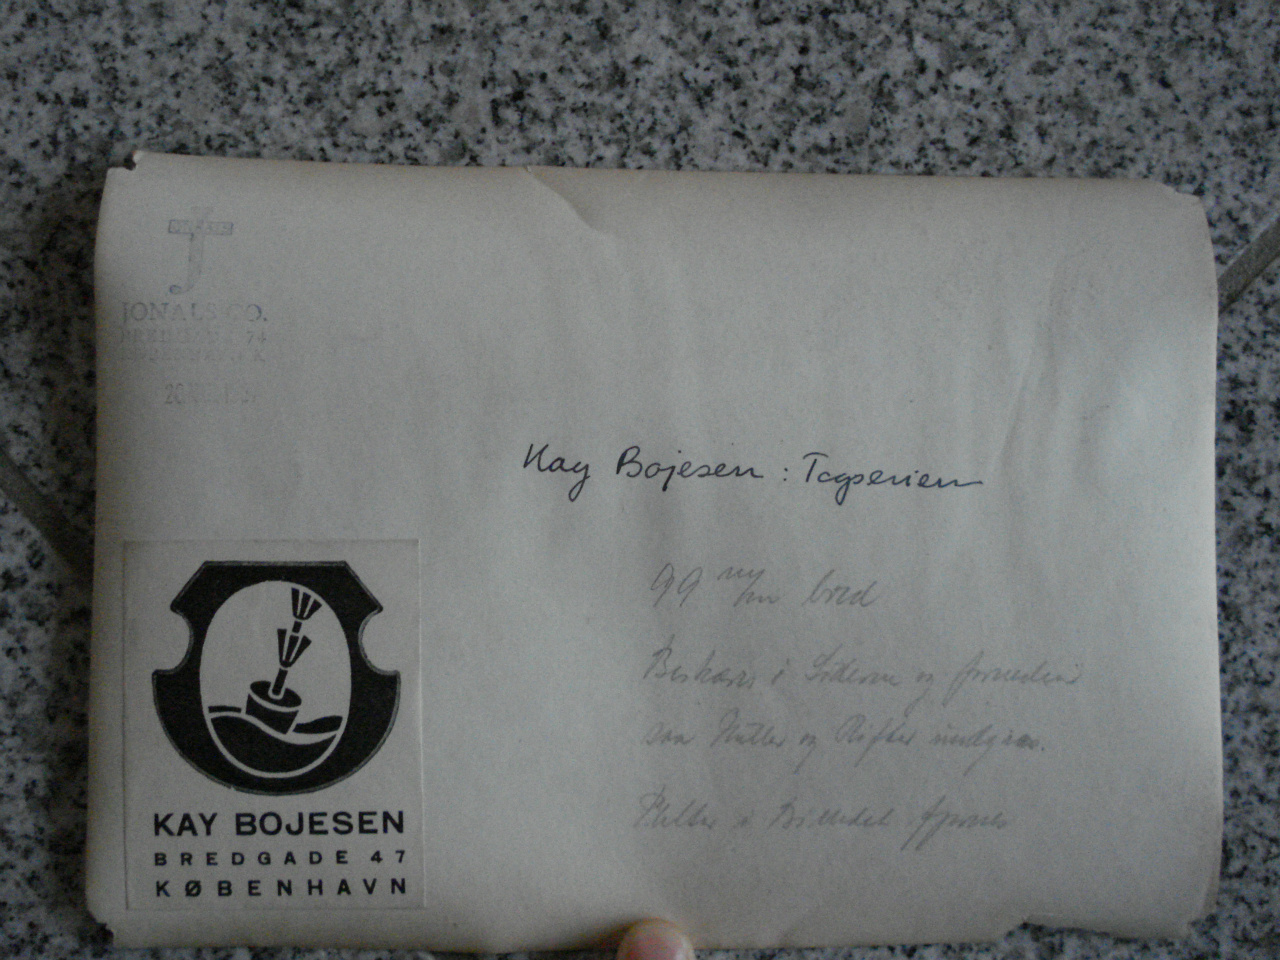 J
JONALS CO.
74
Kay Bojesen : Togserien
99 m/m bred
Beskæres i Siderne og forneden
saa Huller og Rifter undgaas.
Pletter i Billedet fjernes
KAY BOJESEN
BREDGADE 47
KØBENHAVN